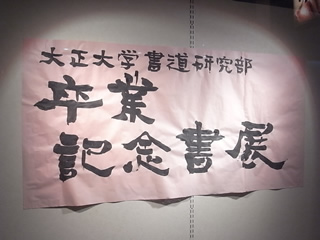 大正大学書道研究部
卒業
記念書展